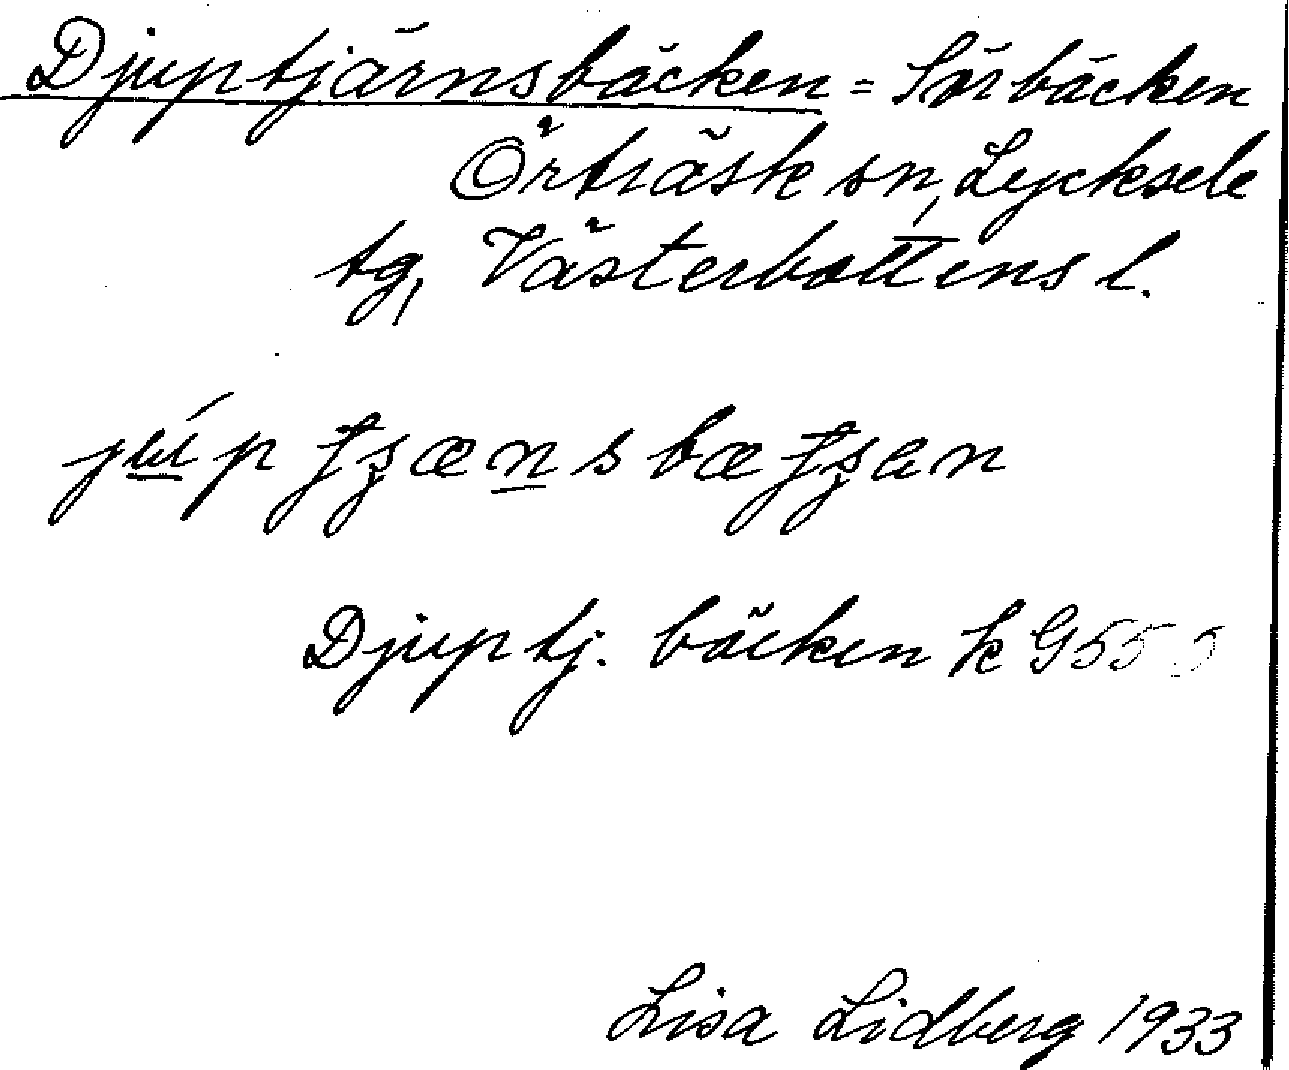 Djuptjärnsbäcken = Sörbäcken
Örträsk sn, Lycksele
tg, Västerbottens l.
Djuptj. bäcken k G555
Lisa Lidberg 1933